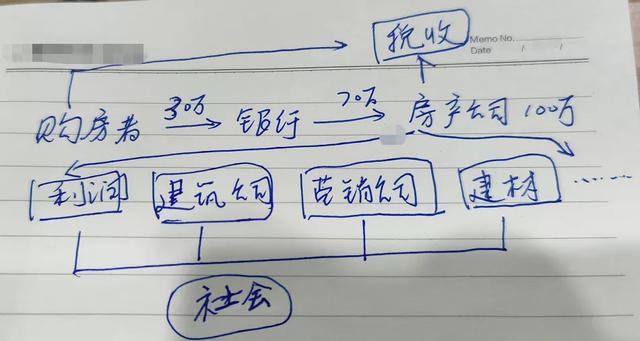 税收
Memo No.
Date / /
购房者 30万 银行 70万 房产公司 100万
利润 建筑公司 营销公司 建材 ……
社会